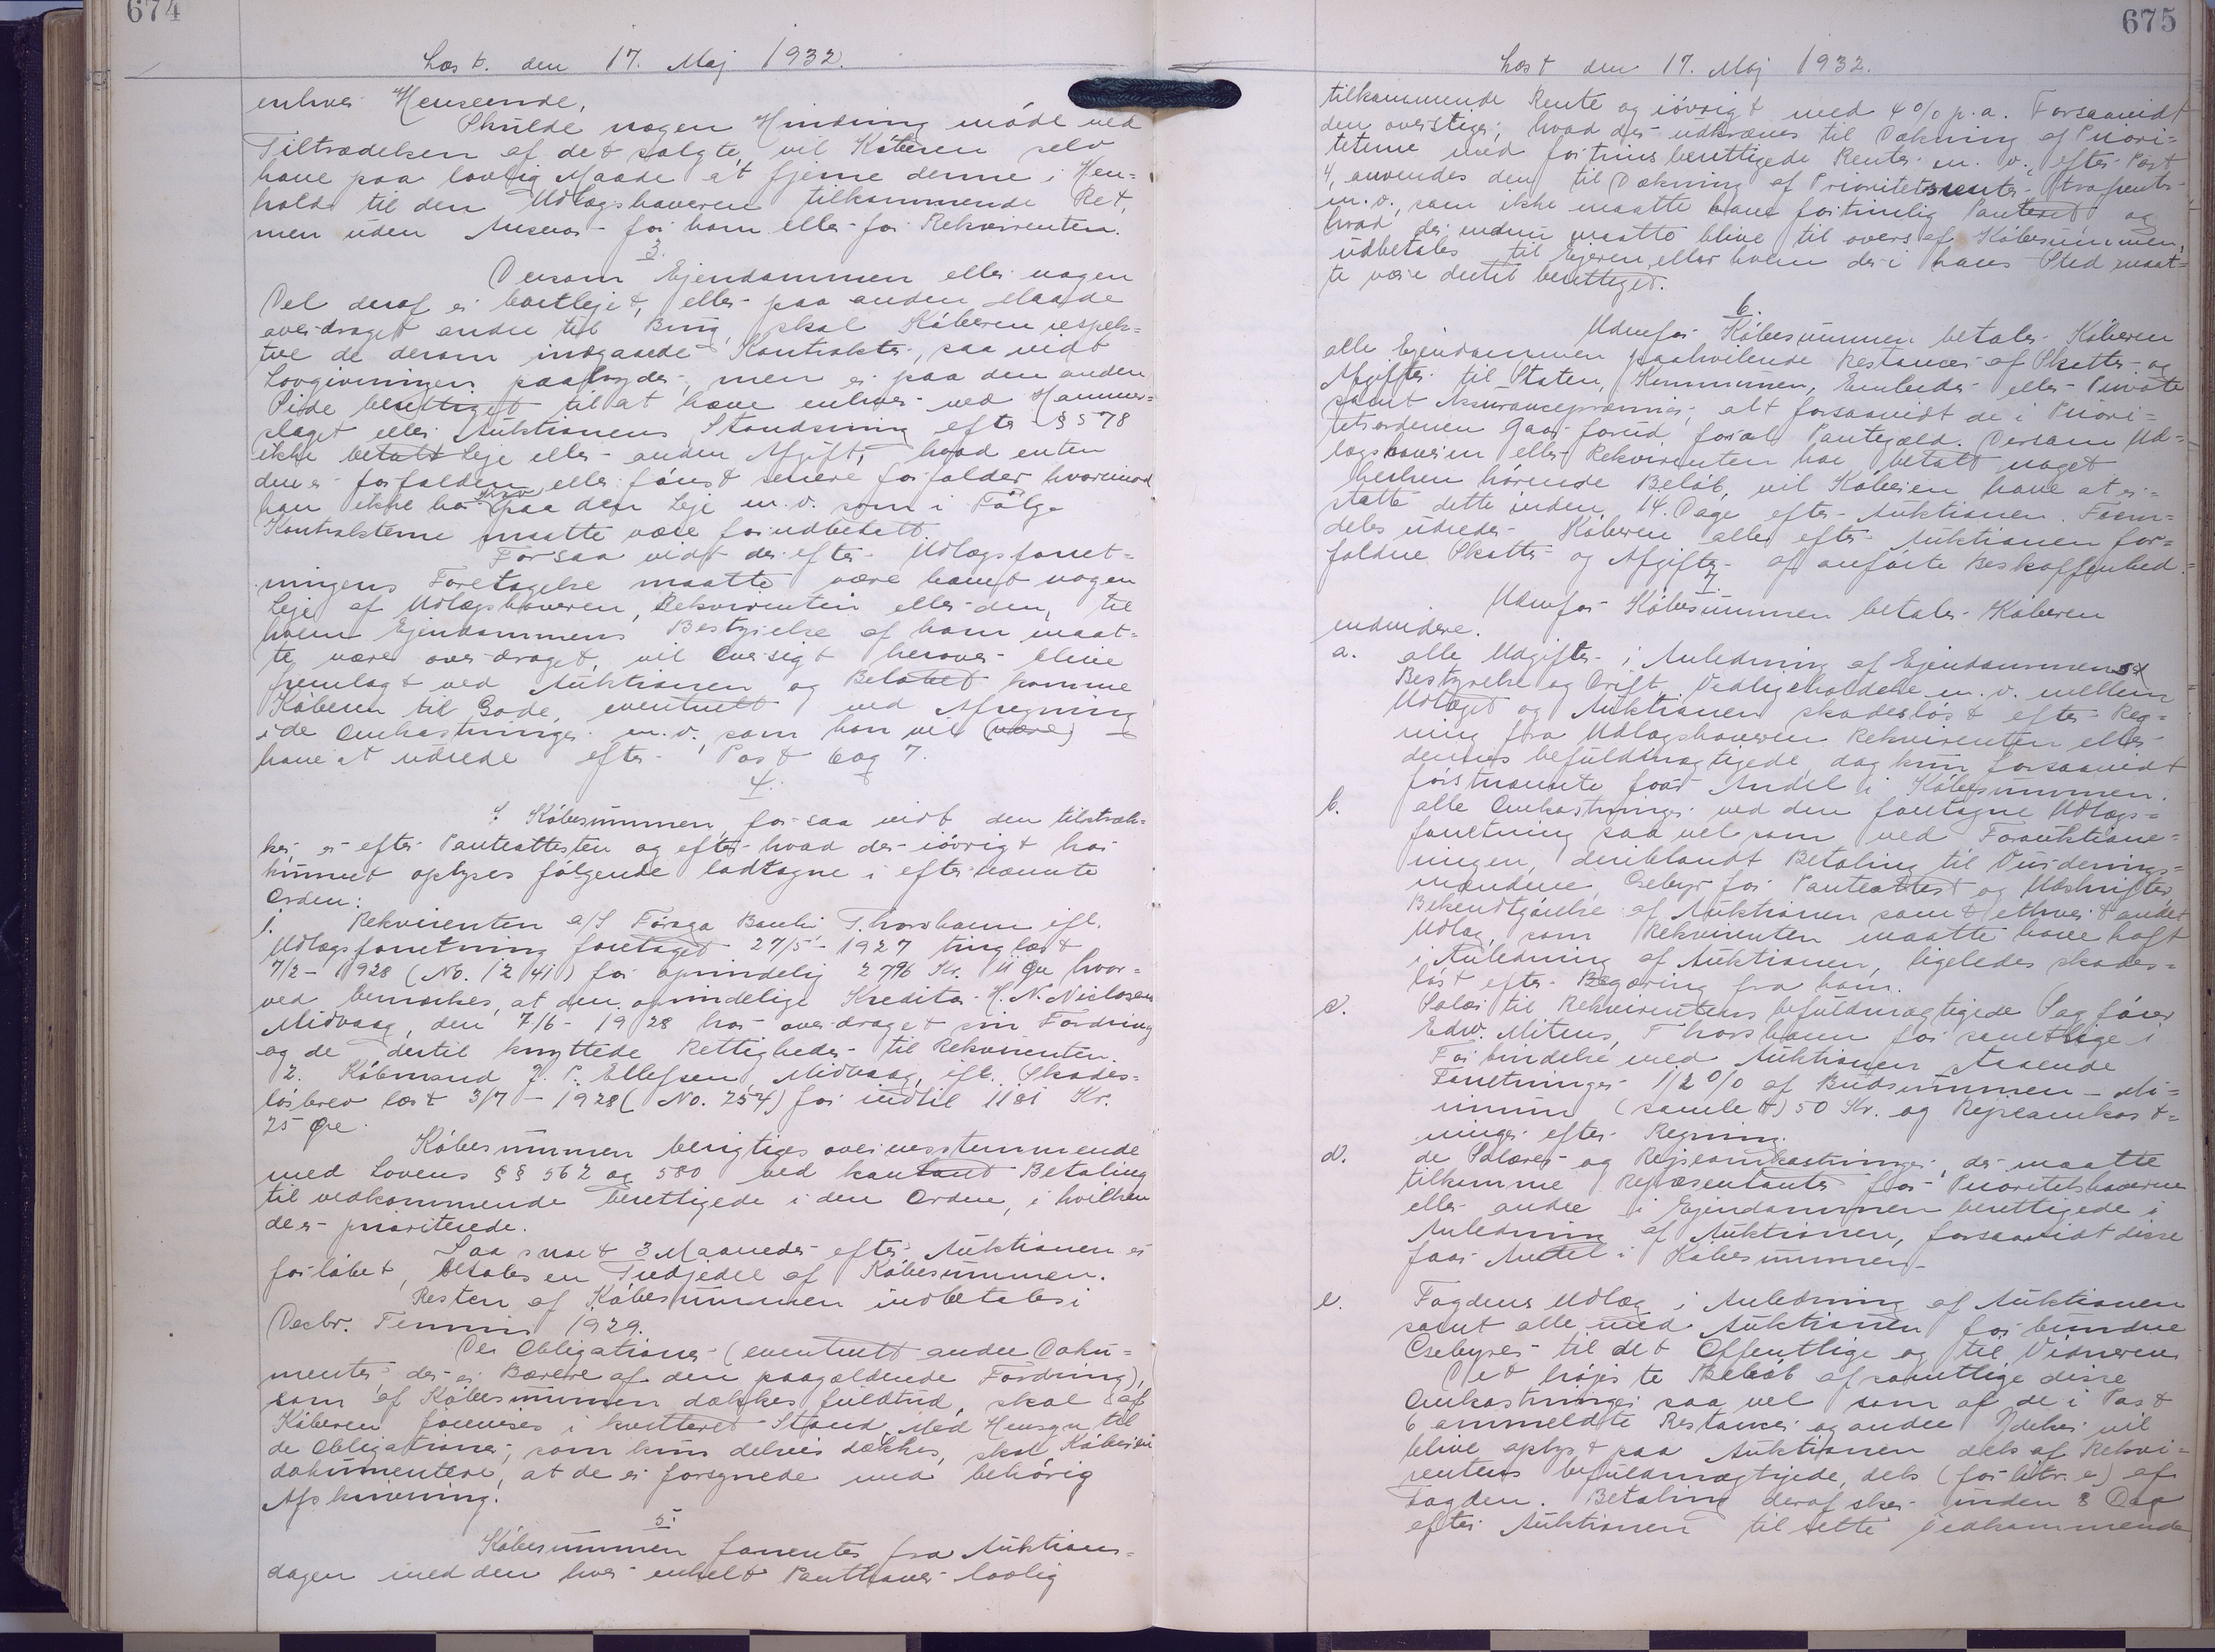 674
Læst. den 17. Maj 1932.
enhver Henseende.
Skulde nogen Hindring møde ved
Tiltrædelsen af det solgte, vil Køberen selv
have paa lovlig Maade at fjerne denne i Hen=
hold til den Udlægshaveren tilkommende Ret,
men uden Ansvar for ham eller for Rekvirenten.
3.
Dersom Ejendommen eller nogen
Del deraf er bortlejet, eller paa anden Maade
overdraget andre til Brug, skal Køberen respek=
tere de derom indgaaede Kontrakter, saa vidt
Lovgivningen paabyder, men er paa den anden
Side berettiget til at hæve enhver ved Hammer=
slaget eller Auktionens Standsning efter § 578
ikke betalt Leje eller anden Afgift, hvad enten
den er forfalden eller først senere forfalder, hvorimod
han ikke har Krav paa den Leje m.v. som i Følge
Kontrakterne maatte være forudbetalt.
Forsaa vidt der efter Udlægsforret=
ningens Foretagelse maatte være hævet nogen
Leje af Udlægshaveren, Rekvirenten eller den, til
hvem Ejendommens Bestyrelse af ham maat=
te være overdraget, vil Oversigt herover blive
fremlagt ved Auktionen og Beløbet komme
Køberen til Gode, eventuelt ved Afregning
i de Omkostninger m.v., som han vil (være)
have at udrede efter Post 6 og 7.
4.
I Købesummen, for saa vidt den tilstræk=
ker, er efter Panteattesten og efter hvad der iøvrigt har
kunnet oplyses følgende lodtagne i efternævnte
Orden:
1. Rekvirenten a/S Føroya Banki, Thorshavn ifl.
Udlægsforretning foretaget 27/5 - 1927 tinglæst
7/2 - 1928 (No. 1241) for oprindelig 2796 Kr. 11 Øre, hvor=
ved bemærkes, at den oprindelige Kreditor H. N. Niclasen
Midvaag, den 7/6 - 1928 har overdraget sin Fordring
og de dertil knyttede Rettigheder til Rekvirenten.
2. Købmand J. P. Ellefsen, Midvaag, ifl. Skades=
løsbrev læst 3/7 - 1928 (No. 254) for indtil 1181 Kr.
25 Øre.
Købesummen berigtiges overensstemmende
med Lovens §§ 562 og 580 ved kontant Betaling
til vedkommende berettigede i den Orden, i hvilken
de er prioriterede.
Saa snart 3 Maaneder efter Auktionen er
forløbet, betales en Tredjedel af Købesummen.
Resten af Købesummen indbetales i
Decbr. Termin 1929.
De Obligationer (eventuelt andre Doku=
menter, der er Bærere af den paagældende Fordring),
som af Købesummen dækkes fuldtud, skal af
Køberen forevises i kvitteret Stand. Med Hensyn til
de Obligationer, som kun delvis dækkes, skal Køberen
dokumentere, at de er forsynede med behørig
Afskrivning.
5.
Købesummen forrentes fra Auktions=
dagen med den hver enkelt Panthaver lovlig
675
Læst den 17. Maj 1932.
tilkommende Rente og iøvrigt med 4% p.a. Forsaavidt
den overstiger, hvad der udkræves til Dækning af Priori=
teterne med fortrinsberettigede Renter m. v. efter Post
4, anvendes den til Dækning af Prioritetsrenter, Strafrenter
m. v., som ikke maatte have fortrinlig Panteret og
hvad der endnu maatte blive til overs af Købesummen,
udbetales til Ejeren, eller hvem der i hans Sted maat=
te være dertil berettiget.
6.
Udenfor Købesummen betaler Køberen
alle Ejendommen paahvilende Restancer af Skatter og
Afgifter til Staten, Kommunen, Embeder eller Private
samt Assurancepræmier, alt forsaavidt de i Priori=
tetsordenen gaar forud for al Pantegæld. Dersom Ud=
lægshaveren eller Rekvirenten har betalt noget
herhen hørende Beløb, vil Køberen have at er=
statte dette inden 14. Dage efter Auktionen. Frem=
deles udreder Køberen alle efter Auktionen for=
faldne Skatter og Afgifter af anførte Beskaffenhed.
7.
Udenfor Købesummen betaler Køberen
endvidere.
a. alle Udgifter i Anledning af Ejendommens
Bestyrelse og Drift, Vedligeholdelse m. v. mellem
Udlæget og Auktionen skadesløst efter Reg=
ning fra Udlægshaveren Rekvirenten eller
dennes befuldmægtigede, dog kun forsaavidt
førstnævnte faar Andel i Købesummen.
b. alle Omkostninger ved den foretagne Udlægs=
forretning saa vel som ved Forauktione=
ringen, deriblandt Betaling til Vurderings=
mændene, Gebyr for Panteattest og Udskrifter,
Bekendtgørelse af Auktionen samt ethvert andet
Udlæg, som Rekvirenten maatte have haft
i Anledning af Auktionen, ligeledes skades=
løst efter Begæring fra ham.
c. Salær til Rekvirentens befuldmægtigede Sagfører
Edw. Mitens, Thorshavn for samtlige i
Forbindelse med Auktionen staaende
Forretninger 1/2 % af Budsummen - Mi=
nimum (samlet) 50 Kr. og Rejseomkost=
ninger efter Regning.
d. de Salærer og Rejseomkostninger, der maatte
tilkomme Repræsentanter for Prioritetshaverne
eller andre i Ejendommen berettigede i
Anledning af Auktionen, forsaavidt disse
faar Andel i Købesummen.
e. Fogdens Udlæg i Anledning af Auktionen
samt alle med Auktionen forbundne
Gebyrer til det Offentlige og til Vidnerne
Det højeste Beløb af samtlige disse
Omkostninger saa vel som af de i Post
6 ommeldte Restancer og andre Ydelser vil
blive oplyst paa Auktionen dels af Rekvi=
rentens befuldmægtigede, dels (for litr. e) af
Fogden. Betaling deraf sker inden 8 Dage
efter Auktionen til rette Vedkommende